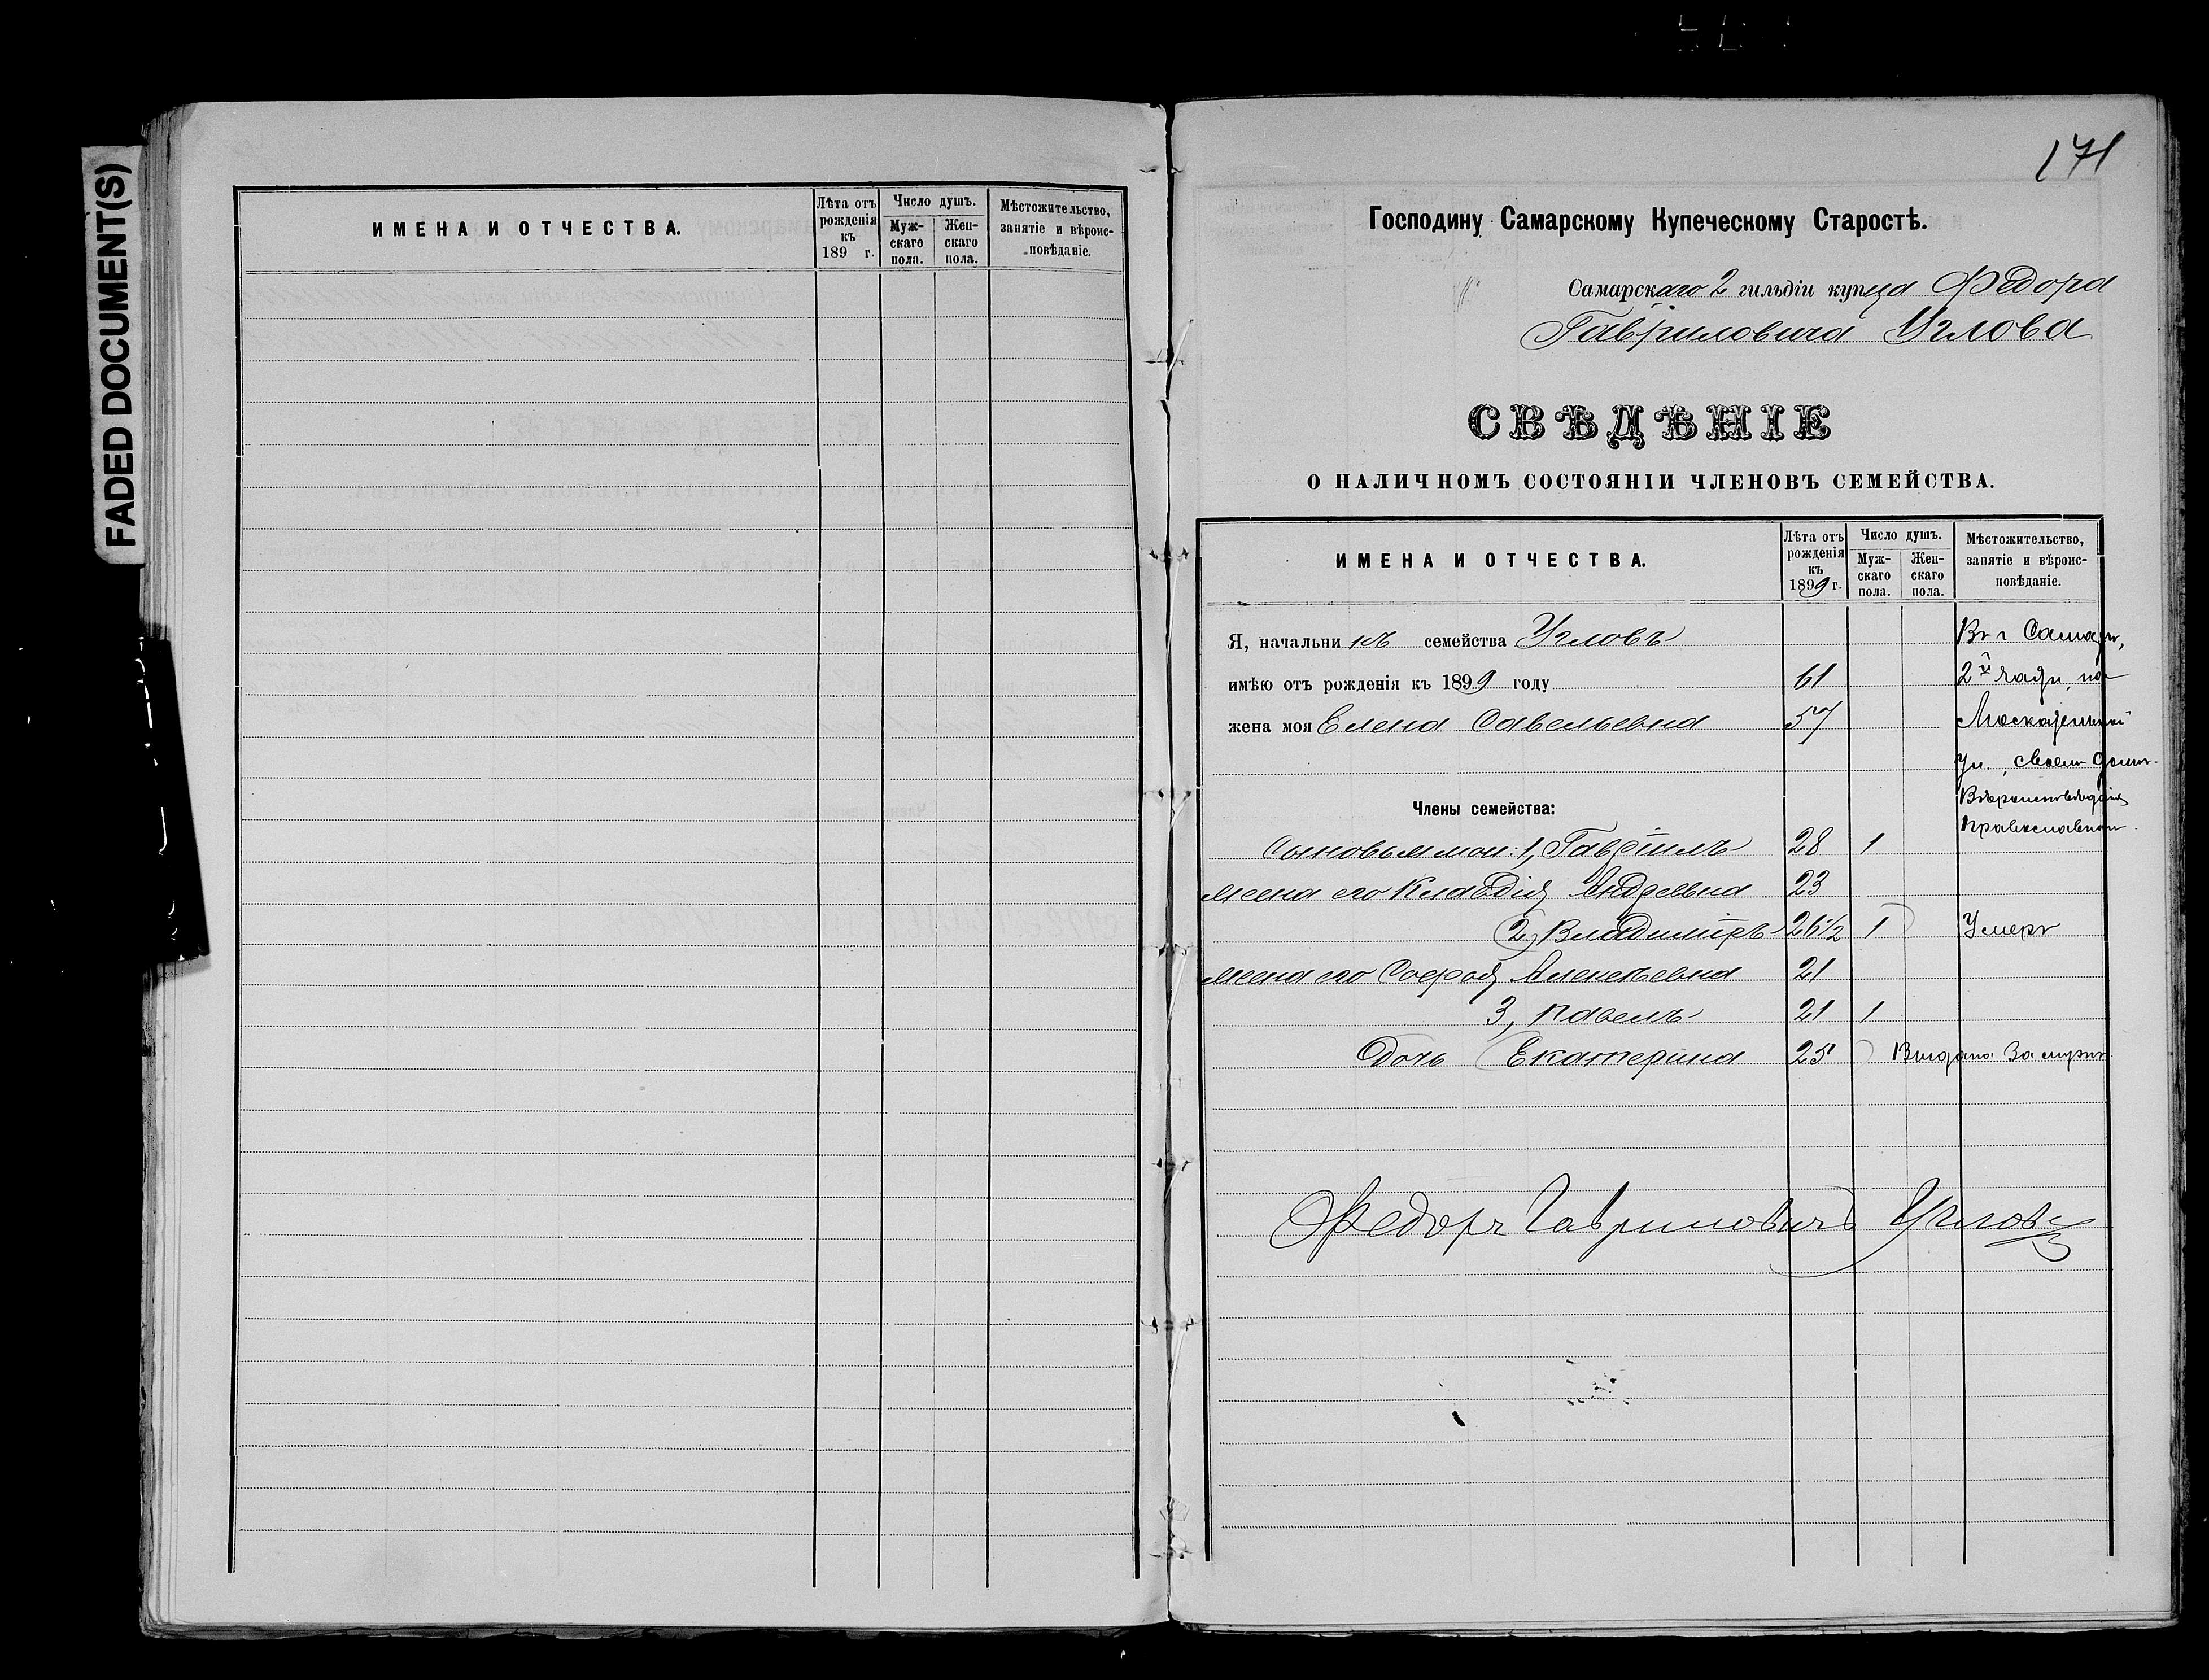 FADED DOCUMENT(S)
ИМЕНА И ОТЧЕСТВА.
Лѣта отъ рожденія къ 189 г.
Число душъ.
Муж-скаго пола.
Жен-скаго пола.
Мѣстожительство, занятіе и вѣроис-повѣданіе.
171
Господину Самарскому Купеческому Старостѣ.
Самарскаго 2 гильдіи купца Федора
Гавриловича Углова
СВѢДѢНІЕ
О НАЛИЧНОМЪ СОСТОЯНІИ ЧЛЕНОВЪ СЕМЕЙСТВА.
ИМЕНА И ОТЧЕСТВА.
Лѣта отъ рожденія къ 1899 г.
Число душъ.
Муж-скаго пола.
Жен-скаго пола.
Мѣстожительство, занятіе и вѣроис-повѣданіе.
Я, начальникъ семейства Угловъ Въ г Самарѣ,
имѣю отъ рожденія къ 1899 году 61 2й части, на
жена моя Елена Савельевна 57
ул., своемъ домѣ.
Вѣроисповѣданія
Члены семейства: православнаго.
Сыновья мои: 1, Гавріилъ 28 1
жена его Клавдія Андреевна 23
2, Владиміръ 26 1/2 1 Умеръ
жена его Софья Алексѣевна 21
3, Павелъ 21 1
Дочь Екатерина 25 Выдана замужъ.
Федоръ Гавриловичъ Угловъ